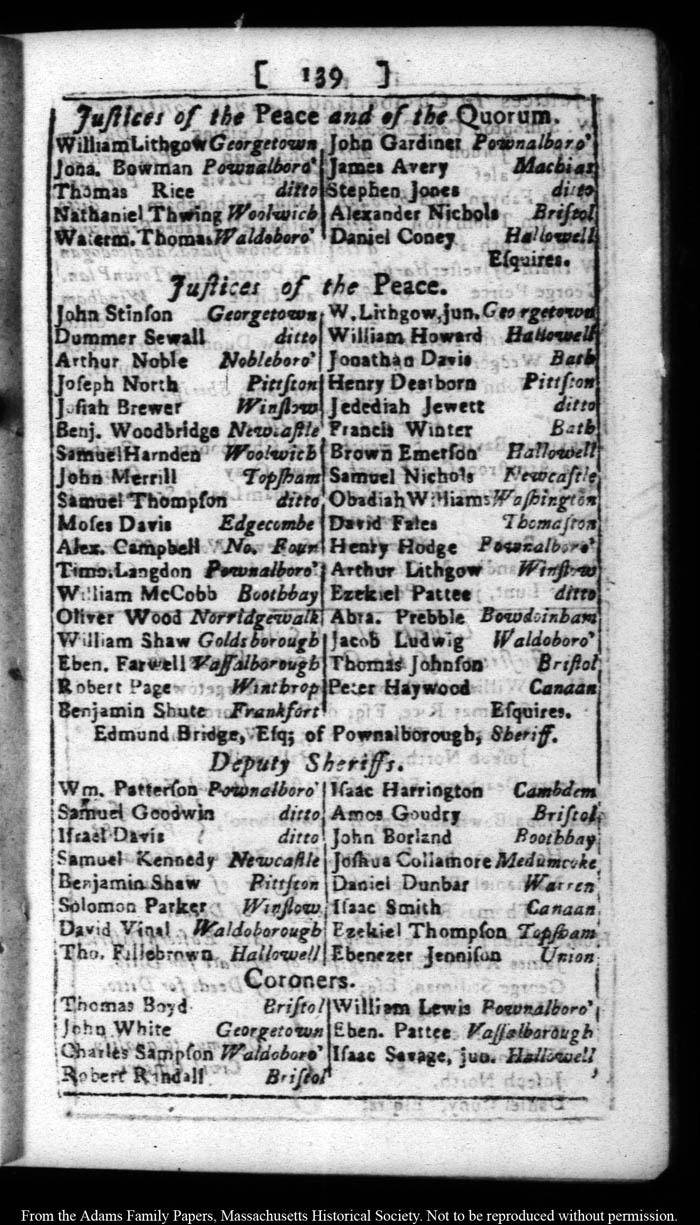 [ 139 ]
Juſtices of the Peace and of the Quorum.
William Lithgow Georgetown John Gardiner Pownalboro'
Jona. Bowman Pownalboro' James Avery Machias
Thomas Rice ditto Stephen Jones ditto
Nathaniel Thwing Woolwich Alexander Nichols Briſtol
Waterm. Thomas Waldoboro' Daniel Coney Hallowell
Eſquires.
Juſtices of the Peace.
John Stinſon Georgetown W. Lithgow, jun. Georgetown
Dummer Sewall ditto William Howard Hallowell
Arthur Noble Nobleboro' Jonathan Davis Bath
Joſeph North Pittſton Henry Dearborn Pittſton
Joſiah Brewer Winſlow Jedediah Jewett ditto
Benj. Woodbridge Newcaſtle Francis Winter Bath
Samuel Harnden Woolwich Brown Emerſon Hallowell
John Merrill Topſham Samuel Nichols Newcaſtle
Samuel Thompſon ditto Obadiah Williams Waſhington
Moſes Davis Edgecombe David Fales Thomaſton
Alex. Campbell No. Four Henry Hodge Pownalboro'
Timo. Langdon Pownalboro' Arthur Lithgow Winſlow
William McCobb Boothbay Ezekiel Pattee ditto
Oliver Wood Norridgewalk Abra. Prebble Bowdoinham
William Shaw Goldsborough Jacob Ludwig Waldoboro'
Eben. Farwell Vaſſalborough Thomas Johnſon Briſtol
Robert Page Winthrop Peter Haywood Canaan
Benjamin Shute Frankfort Eſquires.
Edmund Bridge, Eſq; of Pownalborough, Sheriff.
Deputy Sheriffs.
Wm. Patterſon Pownalboro' Iſaac Harrington Cambdem
Samuel Goodwin ditto Amos Goudry Briſtol
Iſrael Davis ditto John Borland Boothbay
Samuel Kennedy Newcaſtle Joſhua Collamore Medumcoke
Benjamin Shaw Pittſton Daniel Dunbar Warren
Solomon Parker Winſlow Iſaac Smith Canaan
David Vinal Waldoborough Ezekiel Thompſon Topſham
Tho. Fillebrown Hallowell Ebenezer Jenniſon Union
Coroners.
Thomas Boyd Briſtol William Lewis Pownalboro'
John White Georgetown Eben. Pattee Vaſſalborough
Charles Sampſon Waldoboro' Iſaac Savage, jun. Hallowell
Robert Rindall Briſtol
From the Adams Family Papers, Massachusetts Historical Society. Not to be reproduced without permission.